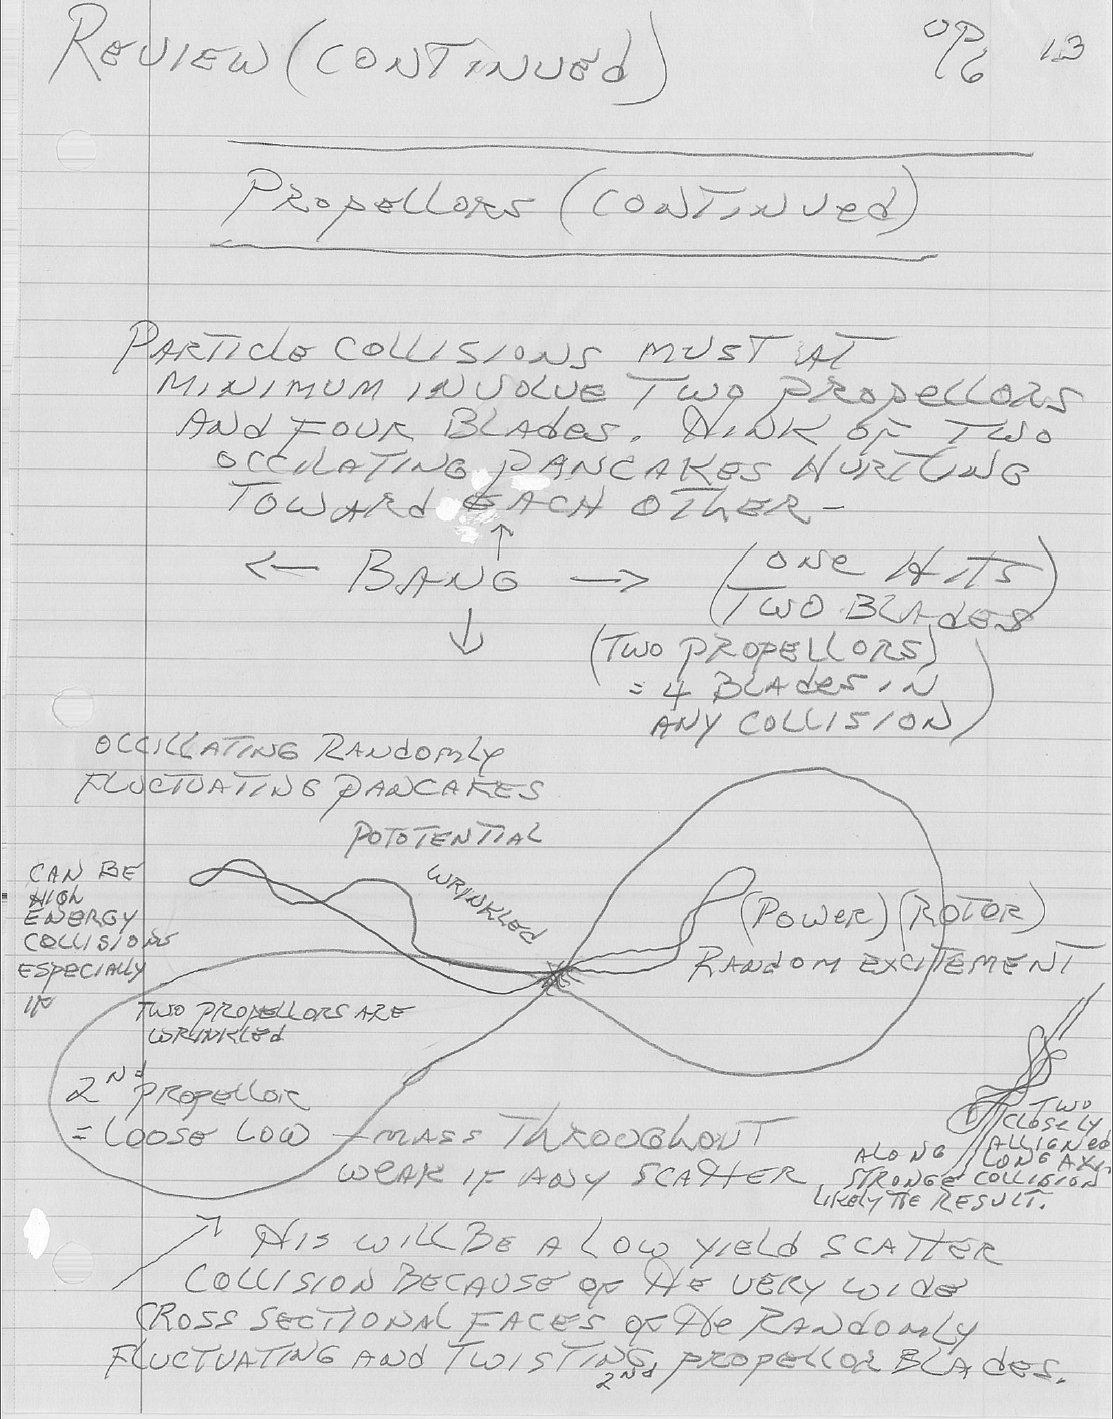 REVIEW (CONTINUED)
OP6 13
PROPELLORS (CONTINUED)
PARTICLE COLLISIONS MUST AT
MINIMUM INVOLVE TWO PROPELLORS
AND FOUR BLADES. THINK OF TWO
OCCILATING PANCAKES HURTLING
TOWARD EACH OTHER -
← BANG →
(ONE HITS
TWO BLADES)
(TWO PROPELLORS)
= 4 BLADES IN
ANY COLLISION)
OCCILLATING RANDOMLY
FLUCTUATING PANCAKES
POTOTENTIAL
WRINKLED
CAN BE
HIGH
ENERGY
COLLISIONS
ESPECIALLY
IF
TWO PROPELLORS ARE
WRINKLED
(POWER) (ROTOR)
RANDOM EXCITEMENT
2ND PROPELLOR
= LOOSE LOW - MASS THROUGHOUT
WEAK IF ANY SCATTER
TWO
CLOSELY
ALLIGNED
ALONG LONG AXIS
STRONGE COLLISION
LIKELY THE RESULT.
THIS WILL BE A LOW YIELD SCATTER
COLLISION BECAUSE OF THE VERY WIDE
CROSS SECTIONAL FACES OF THE RANDOMLY
FLUCTUATING AND TWISTING, PROPELLOR BLADES.
2ND